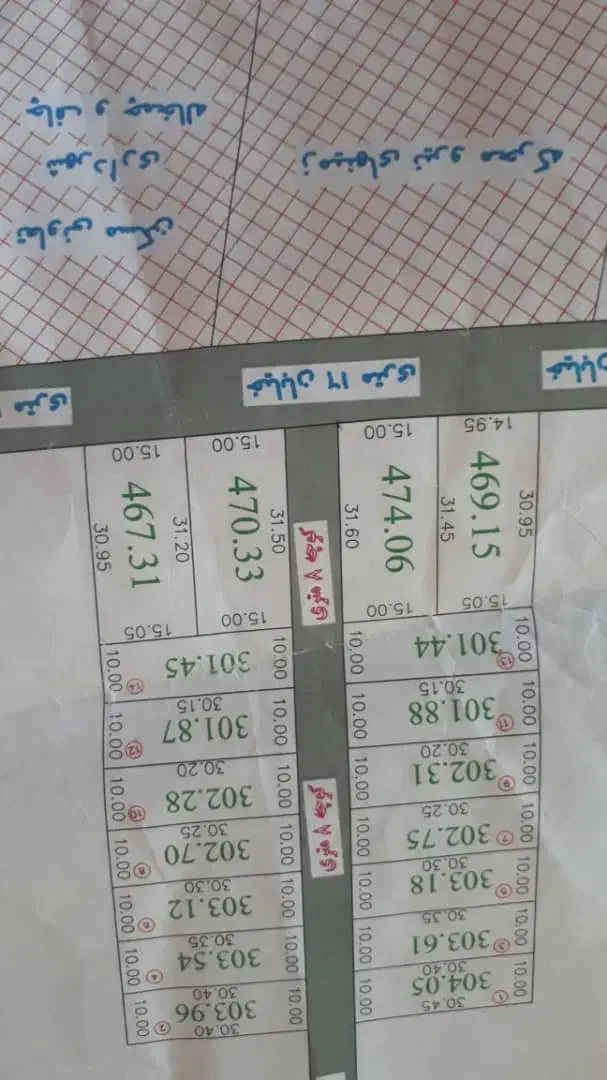 30.45
304.05
1
10.00
10.00
30.40
303.61
3
10.00
10.00
30.35
303.18
5
10.00
10.00
30.30
302.75
7
10.00
10.00
30.25
302.31
9
10.00
10.00
30.20
301.88
11
10.00
10.00
30.15
301.44
13
10.00
10.00
30.40
303.96
2
10.00
10.00
30.40
303.54
4
10.00
10.00
30.35
303.12
6
10.00
10.00
30.30
302.70
8
10.00
10.00
30.25
302.28
10
10.00
10.00
30.20
301.87
12
10.00
10.00
30.15
301.45
14
10.00
10.00
۸ متری
۸ متری
15.05
469.15
30.95
31.45
14.95
15.00
474.06
31.60
15.00
15.00
470.33
31.50
31.20
15.00
15.05
467.31
30.95
15.00
خیابان
خیابان ۱۶ متری
متری
زمینهای نیرو محرکه
تعاونی مسکن
شهرداری
چاف و چمخاله